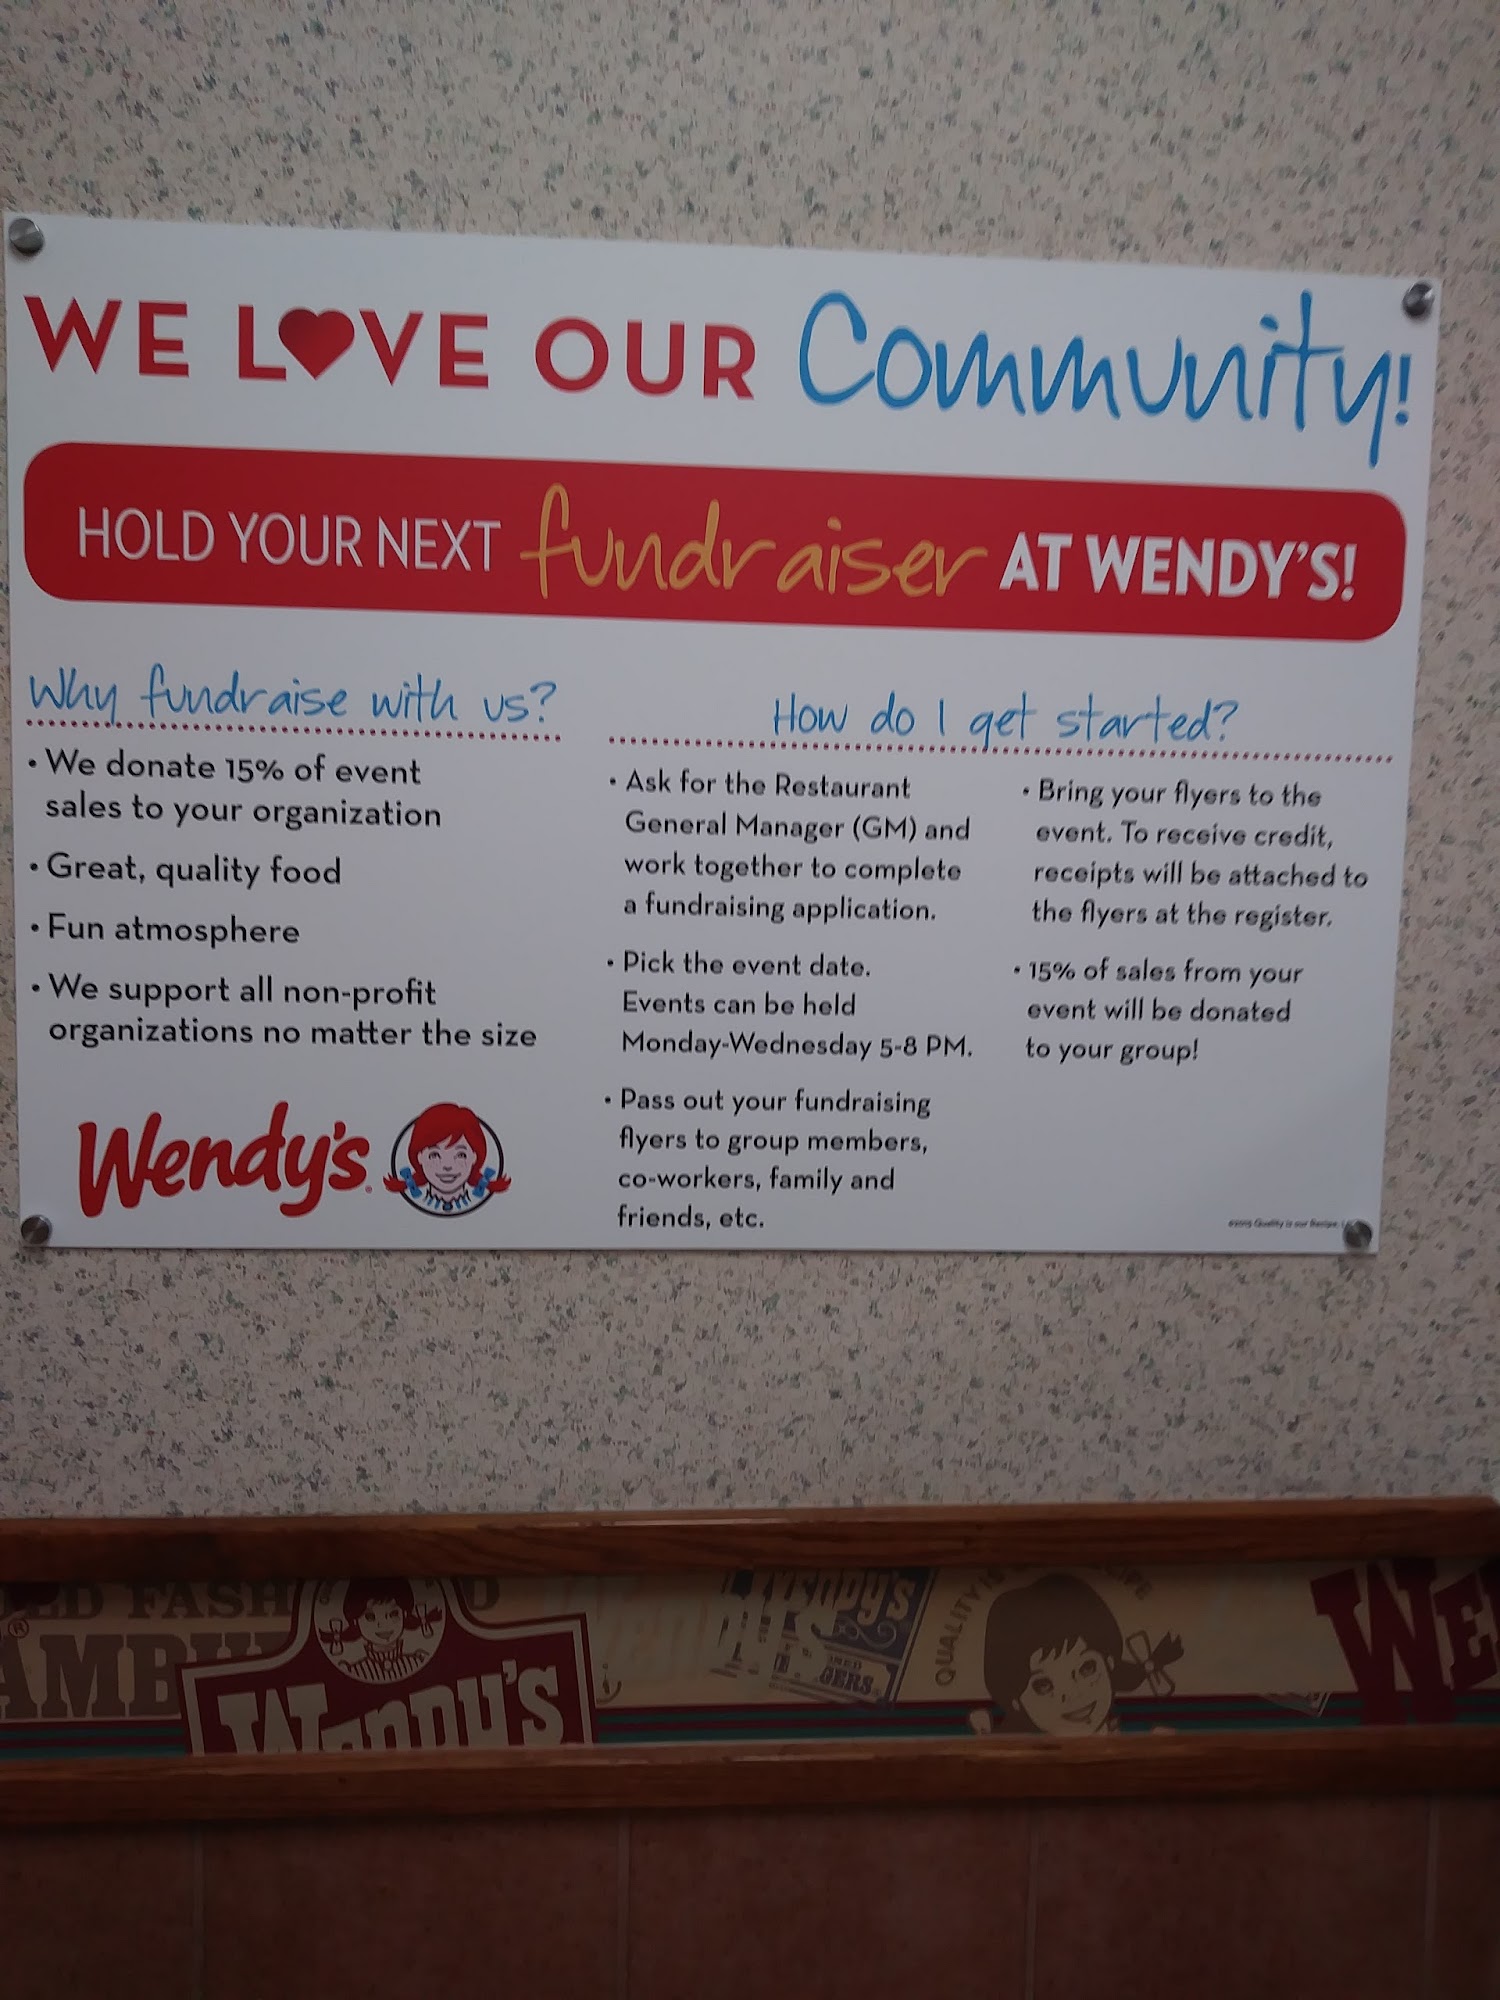 WE LOVE OUR Community!
HOLD YOUR NEXT fundraiser AT WENDY'S!
Why fundraise with us?
• We donate 15% of event
sales to your organization
• Great, quality food
• Fun atmosphere
• We support all non-profit
organizations no matter the size
Wendy's
How do I get started?
• Ask for the Restaurant
General Manager (GM) and
work together to complete
a fundraising application.
• Pick the event date.
Events can be held
Monday-Wednesday 5-8 PM.
• Pass out your fundraising
flyers to group members,
co-workers, family and
friends, etc.
• Bring your flyers to the
event. To receive credit,
receipts will be attached to
the flyers at the register.
• 15% of sales from your
event will be donated
to your group!
Quality is our Recipe,
FASH
AMBU
Wendy's
WENDY'S
GERS
QUALITY IS
WE